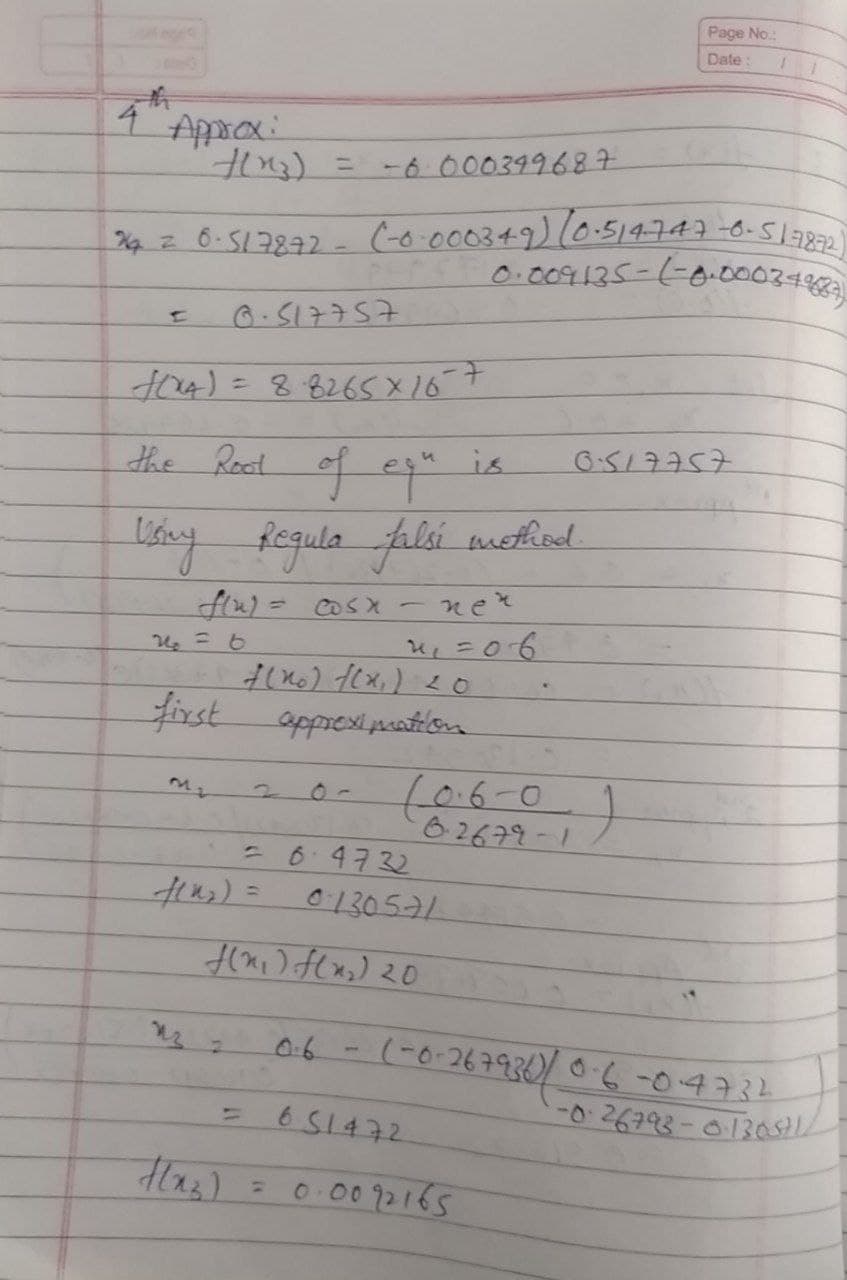 Page No.:
Date : / /
4th Approx:
f(x3) = -0.000349687
x4 = 0.517872 - (-0.000349)(0.514747-0.517872)
0.009135-(-0.000349687)
= 0.517757
f(x4) = 8.8265 x 10-7
the Root of eqn is 0.517757
Using Regula falsi method.
f(x) = cosx - xex
x0 = 0 x1 = 0.6
f(x0) f(x1) < 0
first approximation
x2 = 0 - (0.6-0)
0.2679-1
= 0.4732
f(x2) = 0.130571
f(x1) f(x2) < 0
x3 = 0.6 - (-0.267936)(0.6-0.4732)
-0.26793-0.130571
= 0.51472
f(x3) = 0.0092165